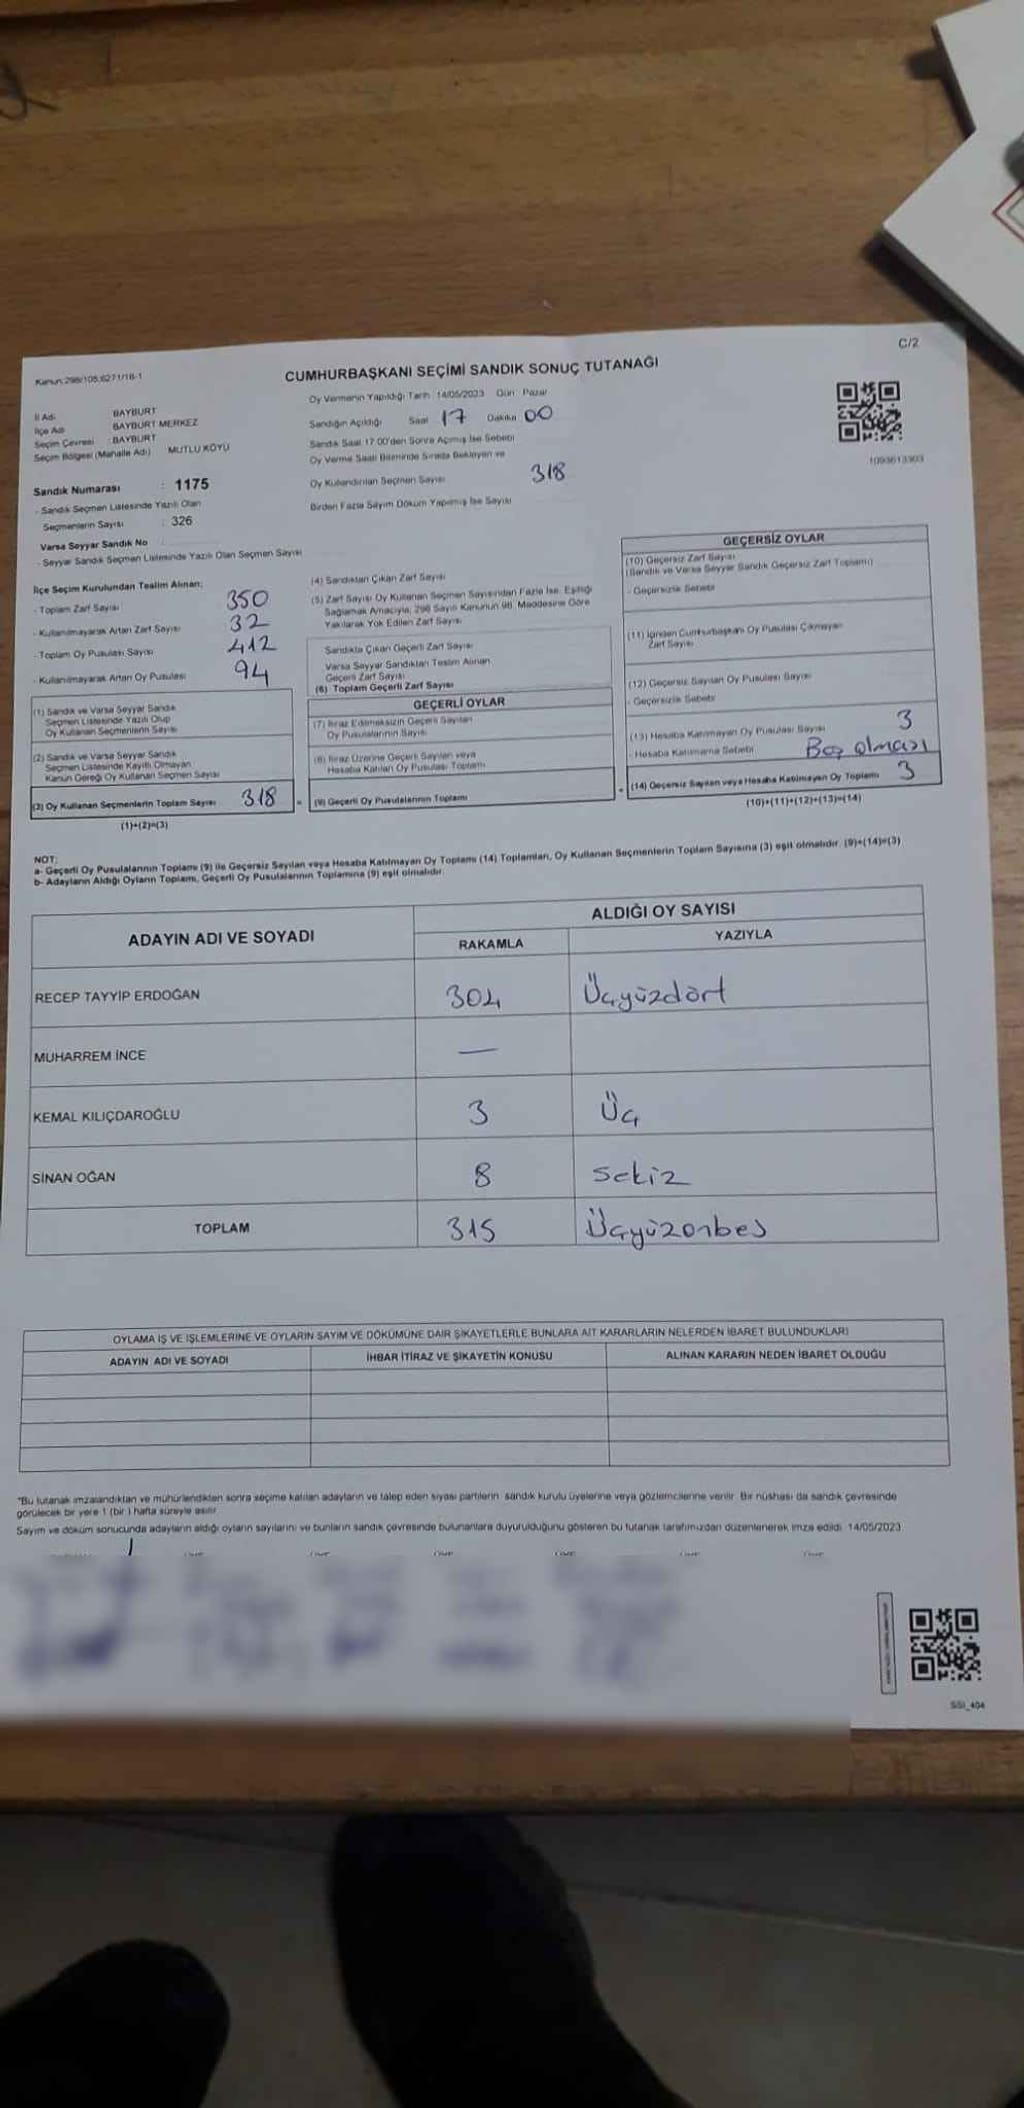 C/2
Kanun:298/105,6271/18-1
CUMHURBAŞKANI SEÇİMİ SANDIK SONUÇ TUTANAĞI
Oy Vermenin Yapıldığı Tarih 14/05/2023 Gün Pazar
İl Adı BAYBURT
İlçe Adı BAYBURT MERKEZ
Seçim Çevresi : BAYBURT
Seçim Bölgesi (Mahalle Adı) MUTLU KÖYÜ
Sandığın Açıldığı Saat 17 Dakika 00
Sandık Saat 17 00'den Sonra Açılmış İse Sebebi
Oy Verme Saati Bitiminde Sırada Bekleyen ve
Oy Kullandırılan Seçmen Sayısı 318
Birden Fazla Sayım Döküm Yapılmış İse Sayısı
1093613303
Sandık Numarası : 1175
- Sandık Seçmen Listesinde Yazılı Olan
Seçmenlerin Sayısı : 326
Varsa Seyyar Sandık No
- Seyyar Sandık Seçmen Listesinde Yazılı Olan Seçmen Sayısı
İlçe Seçim Kurulundan Teslim Alınan;
- Toplam Zarf Sayısı 350
- Kullanılmayarak Artan Zarf Sayısı 32
- Toplam Oy Pusulası Sayısı 412
- Kullanılmayarak Artan Oy Pusulası 94
(1) Sandık ve Varsa Seyyar Sandık
Seçmen Listesinde Yazılı Olup
Oy Kullanan Seçmenlerin Sayısı
(2) Sandık ve Varsa Seyyar Sandık
Seçmen Listesinde Kayıtlı Olmayan
Kanun Gereği Oy Kullanan Seçmen Sayısı
(3) Oy Kullanan Seçmenlerin Toplam Sayısı 318
(1)+(2)=(3)
(4) Sandıktan Çıkan Zarf Sayısı
(5) Zarf Sayısı Oy Kullanan Seçmen Sayısından Fazla İse, Eşitliği
Sağlamak Amacıyla, 298 Sayılı Kanunun 98. Maddesine Göre
Yakılarak Yok Edilen Zarf Sayısı
Sandıkta Çıkan Geçerli Zarf Sayısı
Varsa Seyyar Sandıktan Teslim Alınan
Geçerli Zarf Sayısı
(6) Toplam Geçerli Zarf Sayısı
GEÇERLİ OYLAR
(7) İtiraz Edilmeksizin Geçerli Sayılan
Oy Pusulalarının Sayısı
(8) İtiraz Üzerine Geçerli Sayılan veya
Hesaba Katılan Oy Pusulası Toplamı
(9) Geçerli Oy Pusulalarının Toplamı
GEÇERSİZ OYLAR
(10) Geçersiz Zarf Sayısı
(Sandık ve Varsa Seyyar Sandık Geçersiz Zarf Toplamı)
- Geçersizlik Sebebi
(11) İçinden Cumhurbaşkanı Oy Pusulası Çıkmayan
Zarf Sayısı
(12) Geçersiz Sayılan Oy Pusulası Sayısı
- Geçersizlik Sebebi
(13) Hesaba Katılmayan Oy Pusulası Sayısı 3
- Hesaba Katılmama Sebebi Boş olması
(14) Geçersiz Sayılan veya Hesaba Katılmayan Oy Toplamı 3
(10)+(11)+(12)+(13)=(14)
NOT;
a- Geçerli Oy Pusulalarının Toplamı (9) ile Geçersiz Sayılan veya Hesaba Katılmayan Oy Toplamı (14) Toplamları, Oy Kullanan Seçmenlerin Toplam Sayısına (3) eşit olmalıdır. (9)+(14)=(3)
b- Adayların Aldığı Oyların Toplamı, Geçerli Oy Pusulalarının Toplamına (9) eşit olmalıdır.
ADAYIN ADI VE SOYADI
ALDIĞI OY SAYISI
RAKAMLA YAZIYLA
RECEP TAYYİP ERDOĞAN 304 Üçyüzdört
MUHARREM İNCE —
KEMAL KILIÇDAROĞLU 3 Üç
SİNAN OĞAN 8 Sekiz
TOPLAM 315 Üçyüzonbeş
OYLAMA İŞ VE İŞLEMLERİNE VE OYLARIN SAYIM VE DÖKÜMÜNE DAİR ŞİKAYETLERLE BUNLARA AİT KARARLARIN NELERDEN İBARET BULUNDUKLARI
ADAYIN ADI VE SOYADI İHBAR İTİRAZ VE ŞİKAYETİN KONUSU ALINAN KARARIN NEDEN İBARET OLDUĞU
*Bu tutanak imzalandıktan ve mühürlendikten sonra seçime katılan adayların ve talep eden siyasi partilerin sandık kurulu üyelerine veya gözlemcilerine verilir. Bir nüshası da sandık çevresinde
görülecek bir yere 1 (bir ) hafta süreyle asılır.
Sayım ve döküm sonucunda adayların aldığı oyların sayılarını ve bunların sandık çevresinde bulunanlara duyurulduğunu gösteren bu tutanak tarafımızdan düzenlenerek imza edildi. 14/05/2023
SSI_404